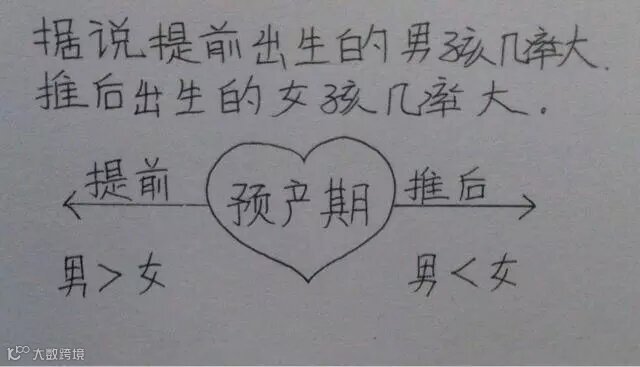 据说提前出生的男孩几率大.
推后出生的女孩几率大.
提前
预产期
推后
男>女
男<女
大数跨境